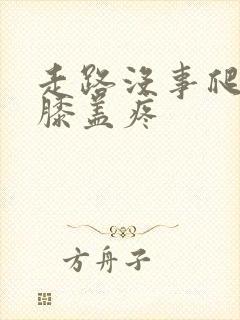 走路没事爬
膝盖疼
方舟子